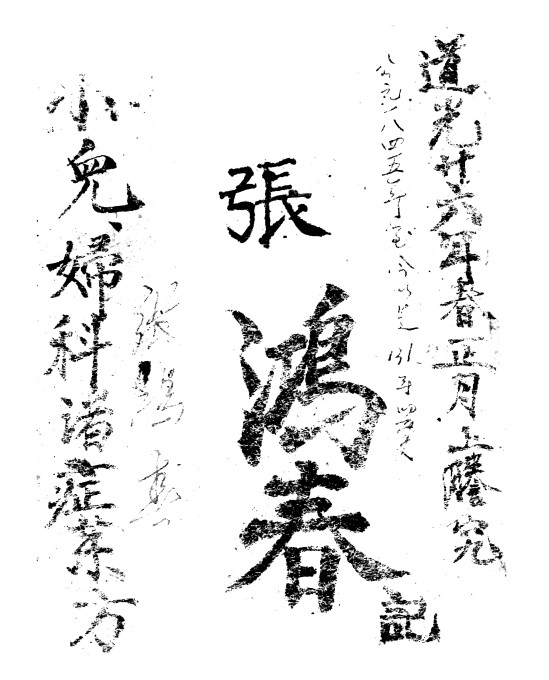 道光廿六年春正月上謄完
公元一八四五年至今以是131年
張鴻春記
張鴻春
小兒、婦科諸症茶方